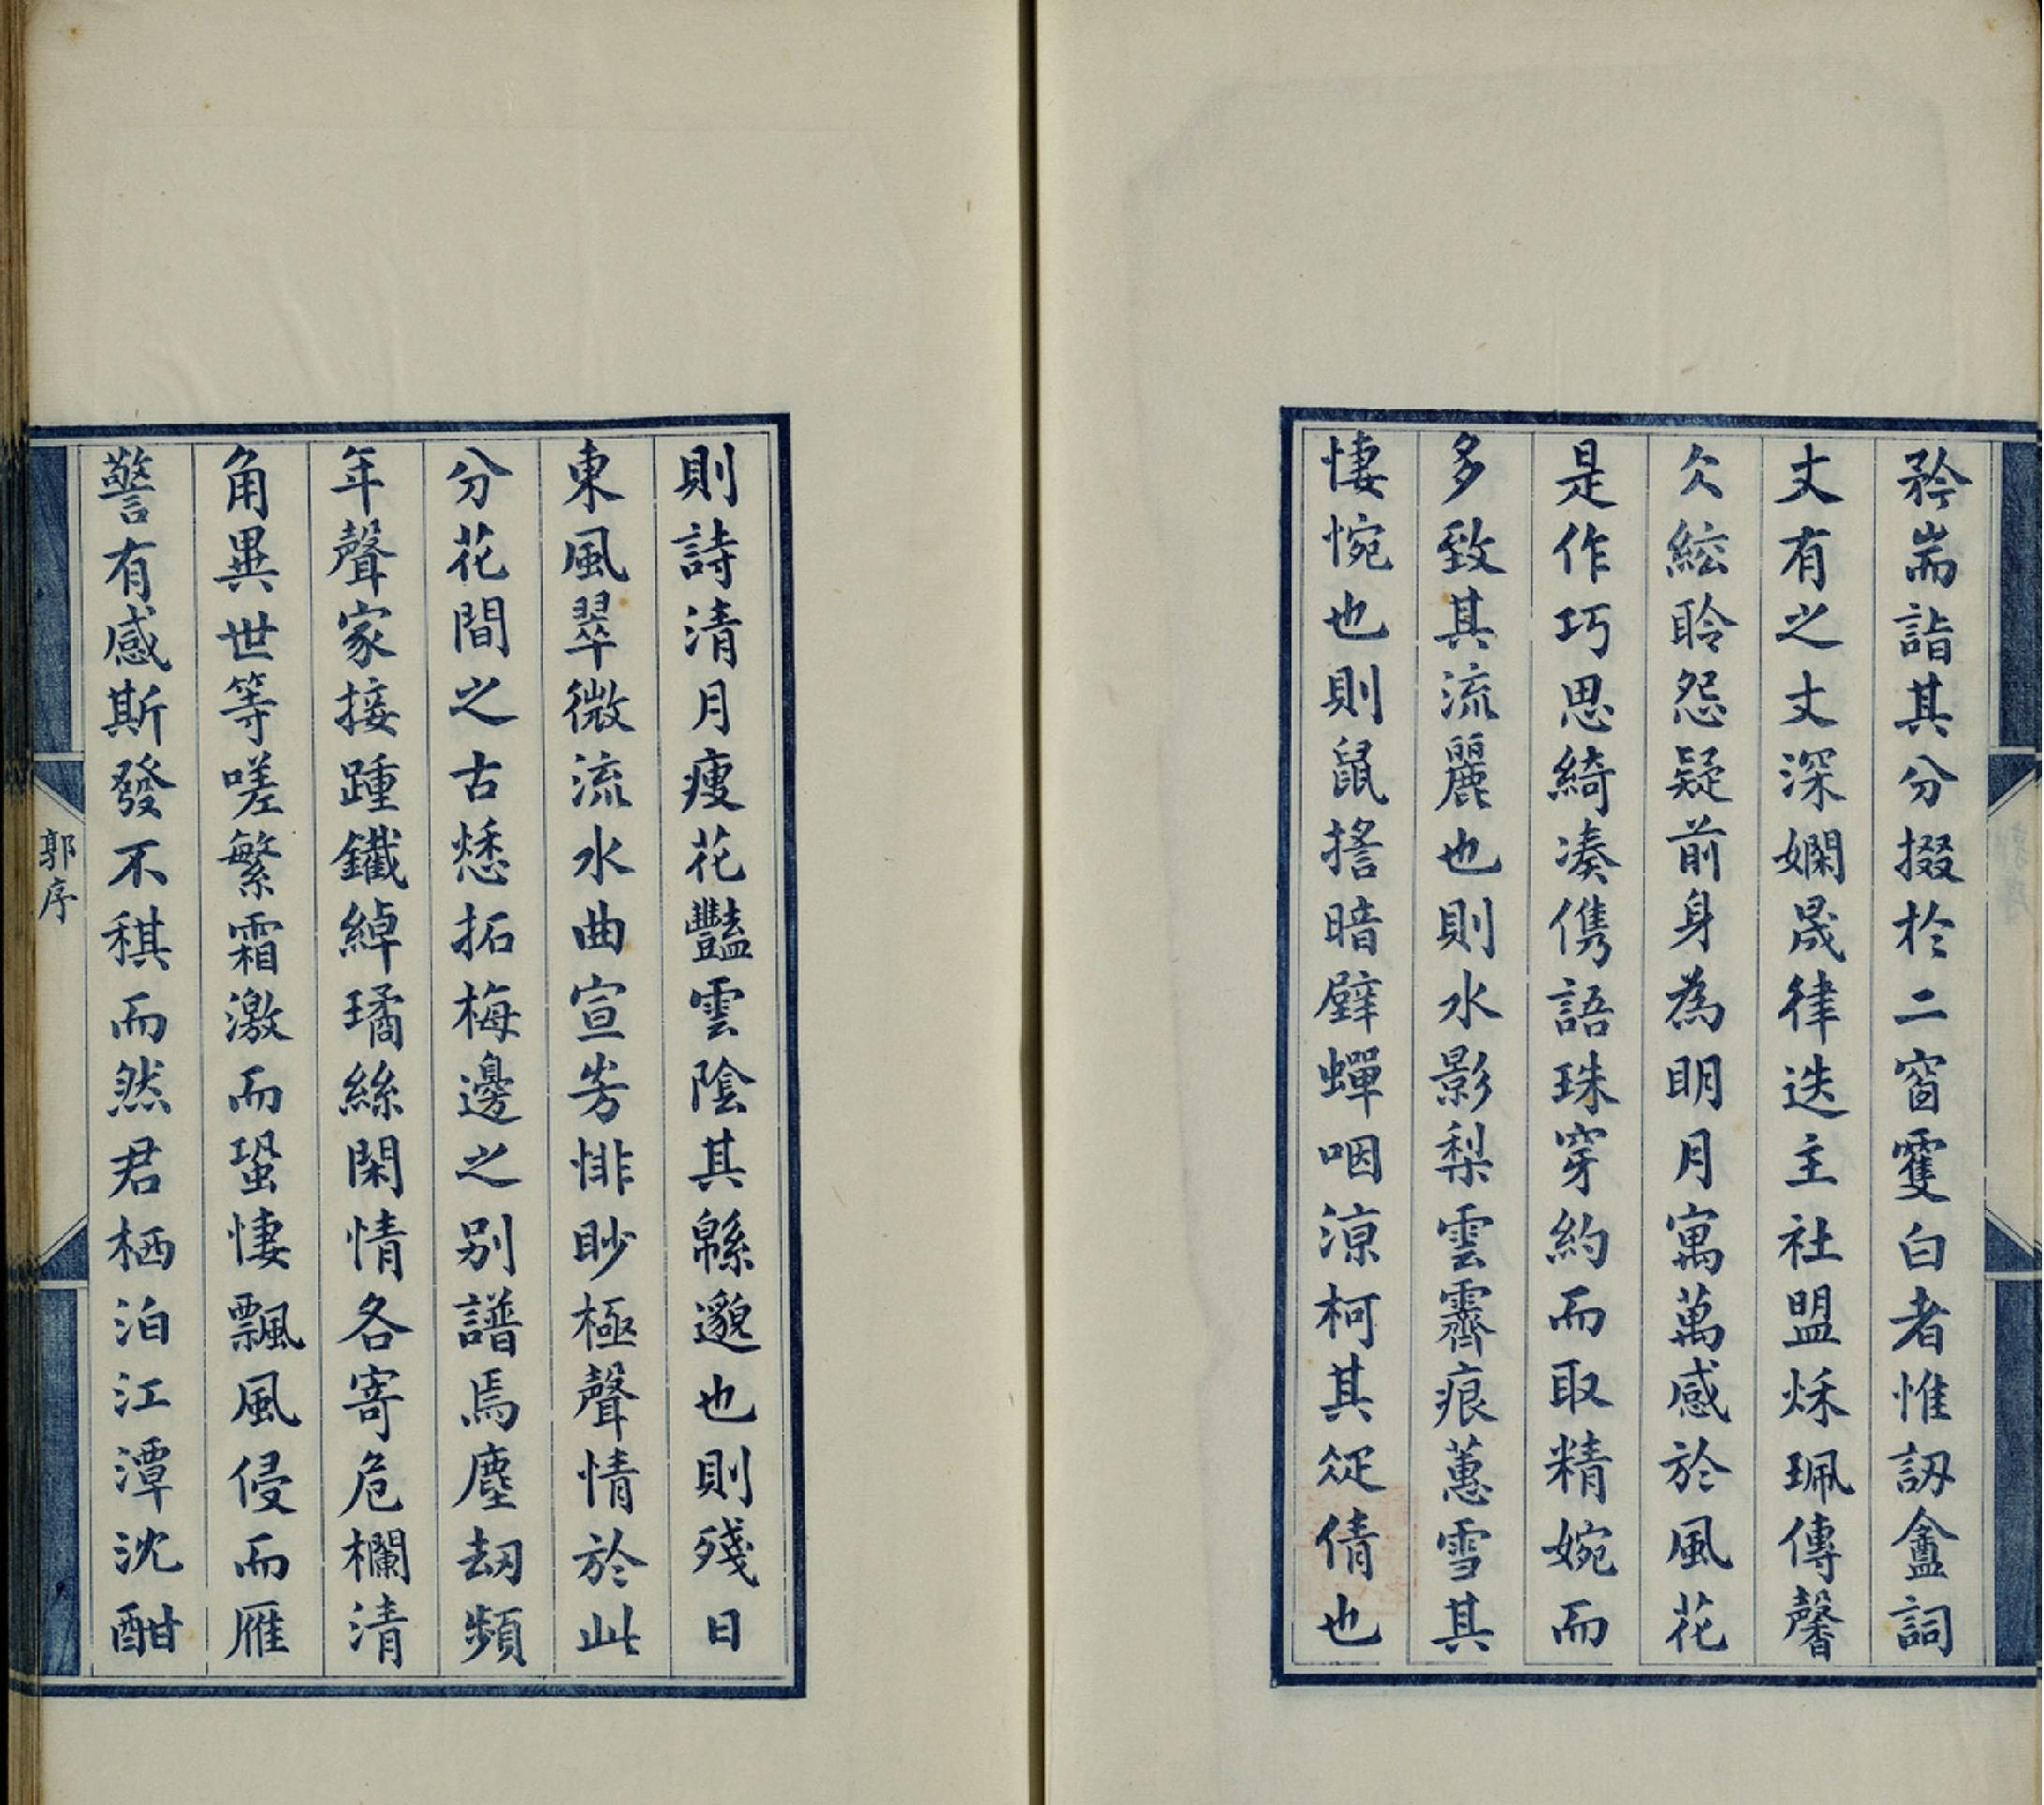 矜耑詣其分掇於二窗雙白者惟訒盦詞
丈有之丈深嫻晟律迭主社盟秌珮傳馨
仌絃聆怨疑前身為明月寓萬感於風花
是作巧思綺湊儁語珠穿約而取精婉而
多致其流麗也則水影梨雲霽痕蕙雪其
悽惋也則鼠擔暗壁蟬咽涼柯其疋倩也
則詩清月瘦花豔雲陰其緜邈也則殘日
東風翠微流水曲宣芳悱眇極聲情於此
分花間之古愁拓梅邊之別譜焉塵劫頻
年聲家接踵鐵綽璚絲閑情各寄危欄清
角異世等嗟繁霜激而蛩悽飄風侵而雁
警有感斯發不稘而然君栖泊江潭沈酣
郭序